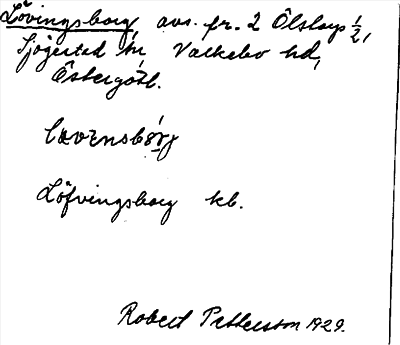 Lövingsborg avs. fr. 2 Ölstorp 1/2,
Sjögestad sn Valkebo hd,
Östergötl.
Löfvingsborg kb.
Robert Pettersson 1929.